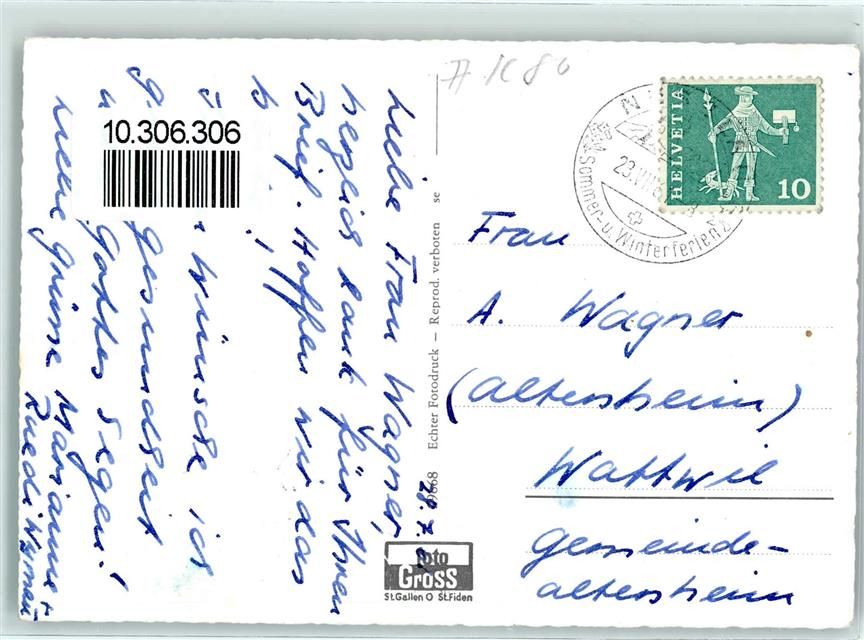 Liebe Frau Wagner,
herzlich dank für Ihren
Brief. Hoffen wir das
b
wünsche ich
g Gesundheit
u Gottes Segen!
Liebe Grüsse Marianne +
Ruedi
10.306.306
28.7.
Echter Fotodruck — Reprod. verboten se
9868
foto
GROSS
St.Gallen O St.Fiden
A 1080
HELVETIA
10
23.VIII
Sommer- u. Winterferien
Frau
A. Wagner
(Altersheim)
Wattwil
Gemeinde-
altersheim